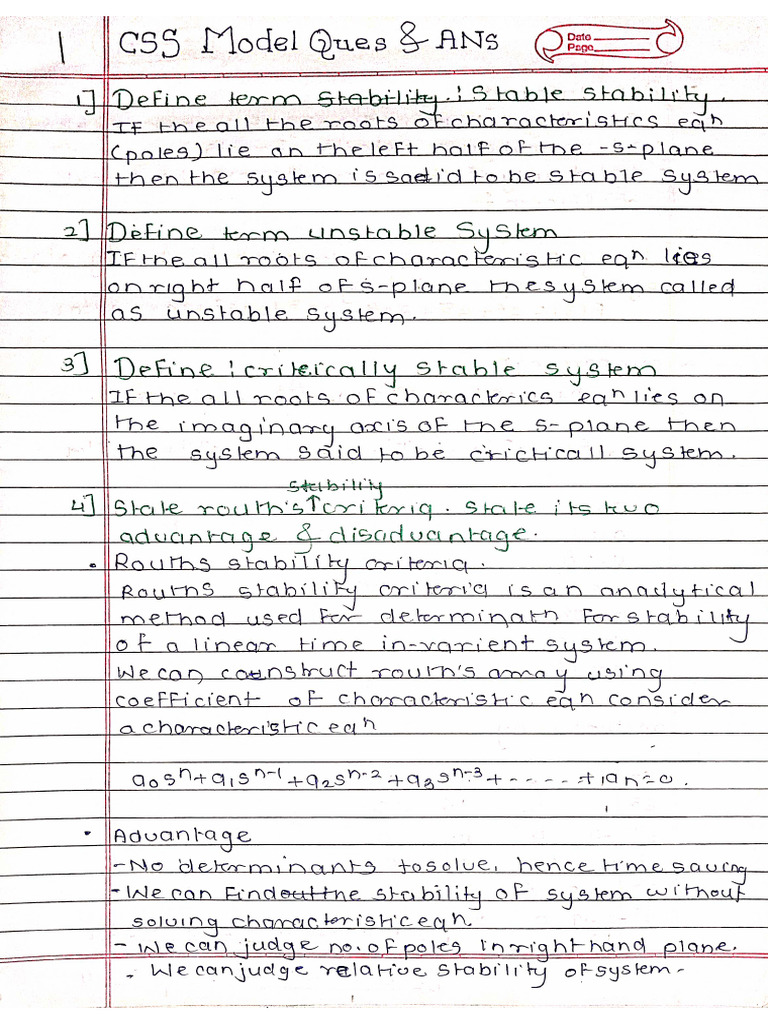 1 CSS Model Ques & ANS
Date
Page
1] Define term Stability : Stable stability.
IF the all the roots of characteristics eqn
(poles) lie on the left half of the -s-plane
then the system is said to be stable system
2] Define term unstable System
IF the all roots of characteristic eqn lies
on right half of s-plane the system called
as unstable system.
3] Define : critically stable system
IF the all roots of characterics eqn lies on
the imaginary axis of the s-plane then
the system said to be cricticall system.
stability
4] State routh's ↑ criteria. State its two
advantage & disadvantage.
• Rouths stability criteria.
Rouths stability criteria is an analytical
method used for determinatn for stability
of a linear time in-varient system.
We can construct routh's array using
coefficient of characteristic eqn consider
a characteristic eqn
a0sⁿ+a1sⁿ⁻¹+a2sⁿ⁻²+a3sⁿ⁻³+-----+an=0.
• Advantage
- No determinants to solve, hence time saving
- We can find out the stability of system without
solving characteristic eqn.
- We can judge no. of poles in right hand plane.
- We can judge relative stability of system-